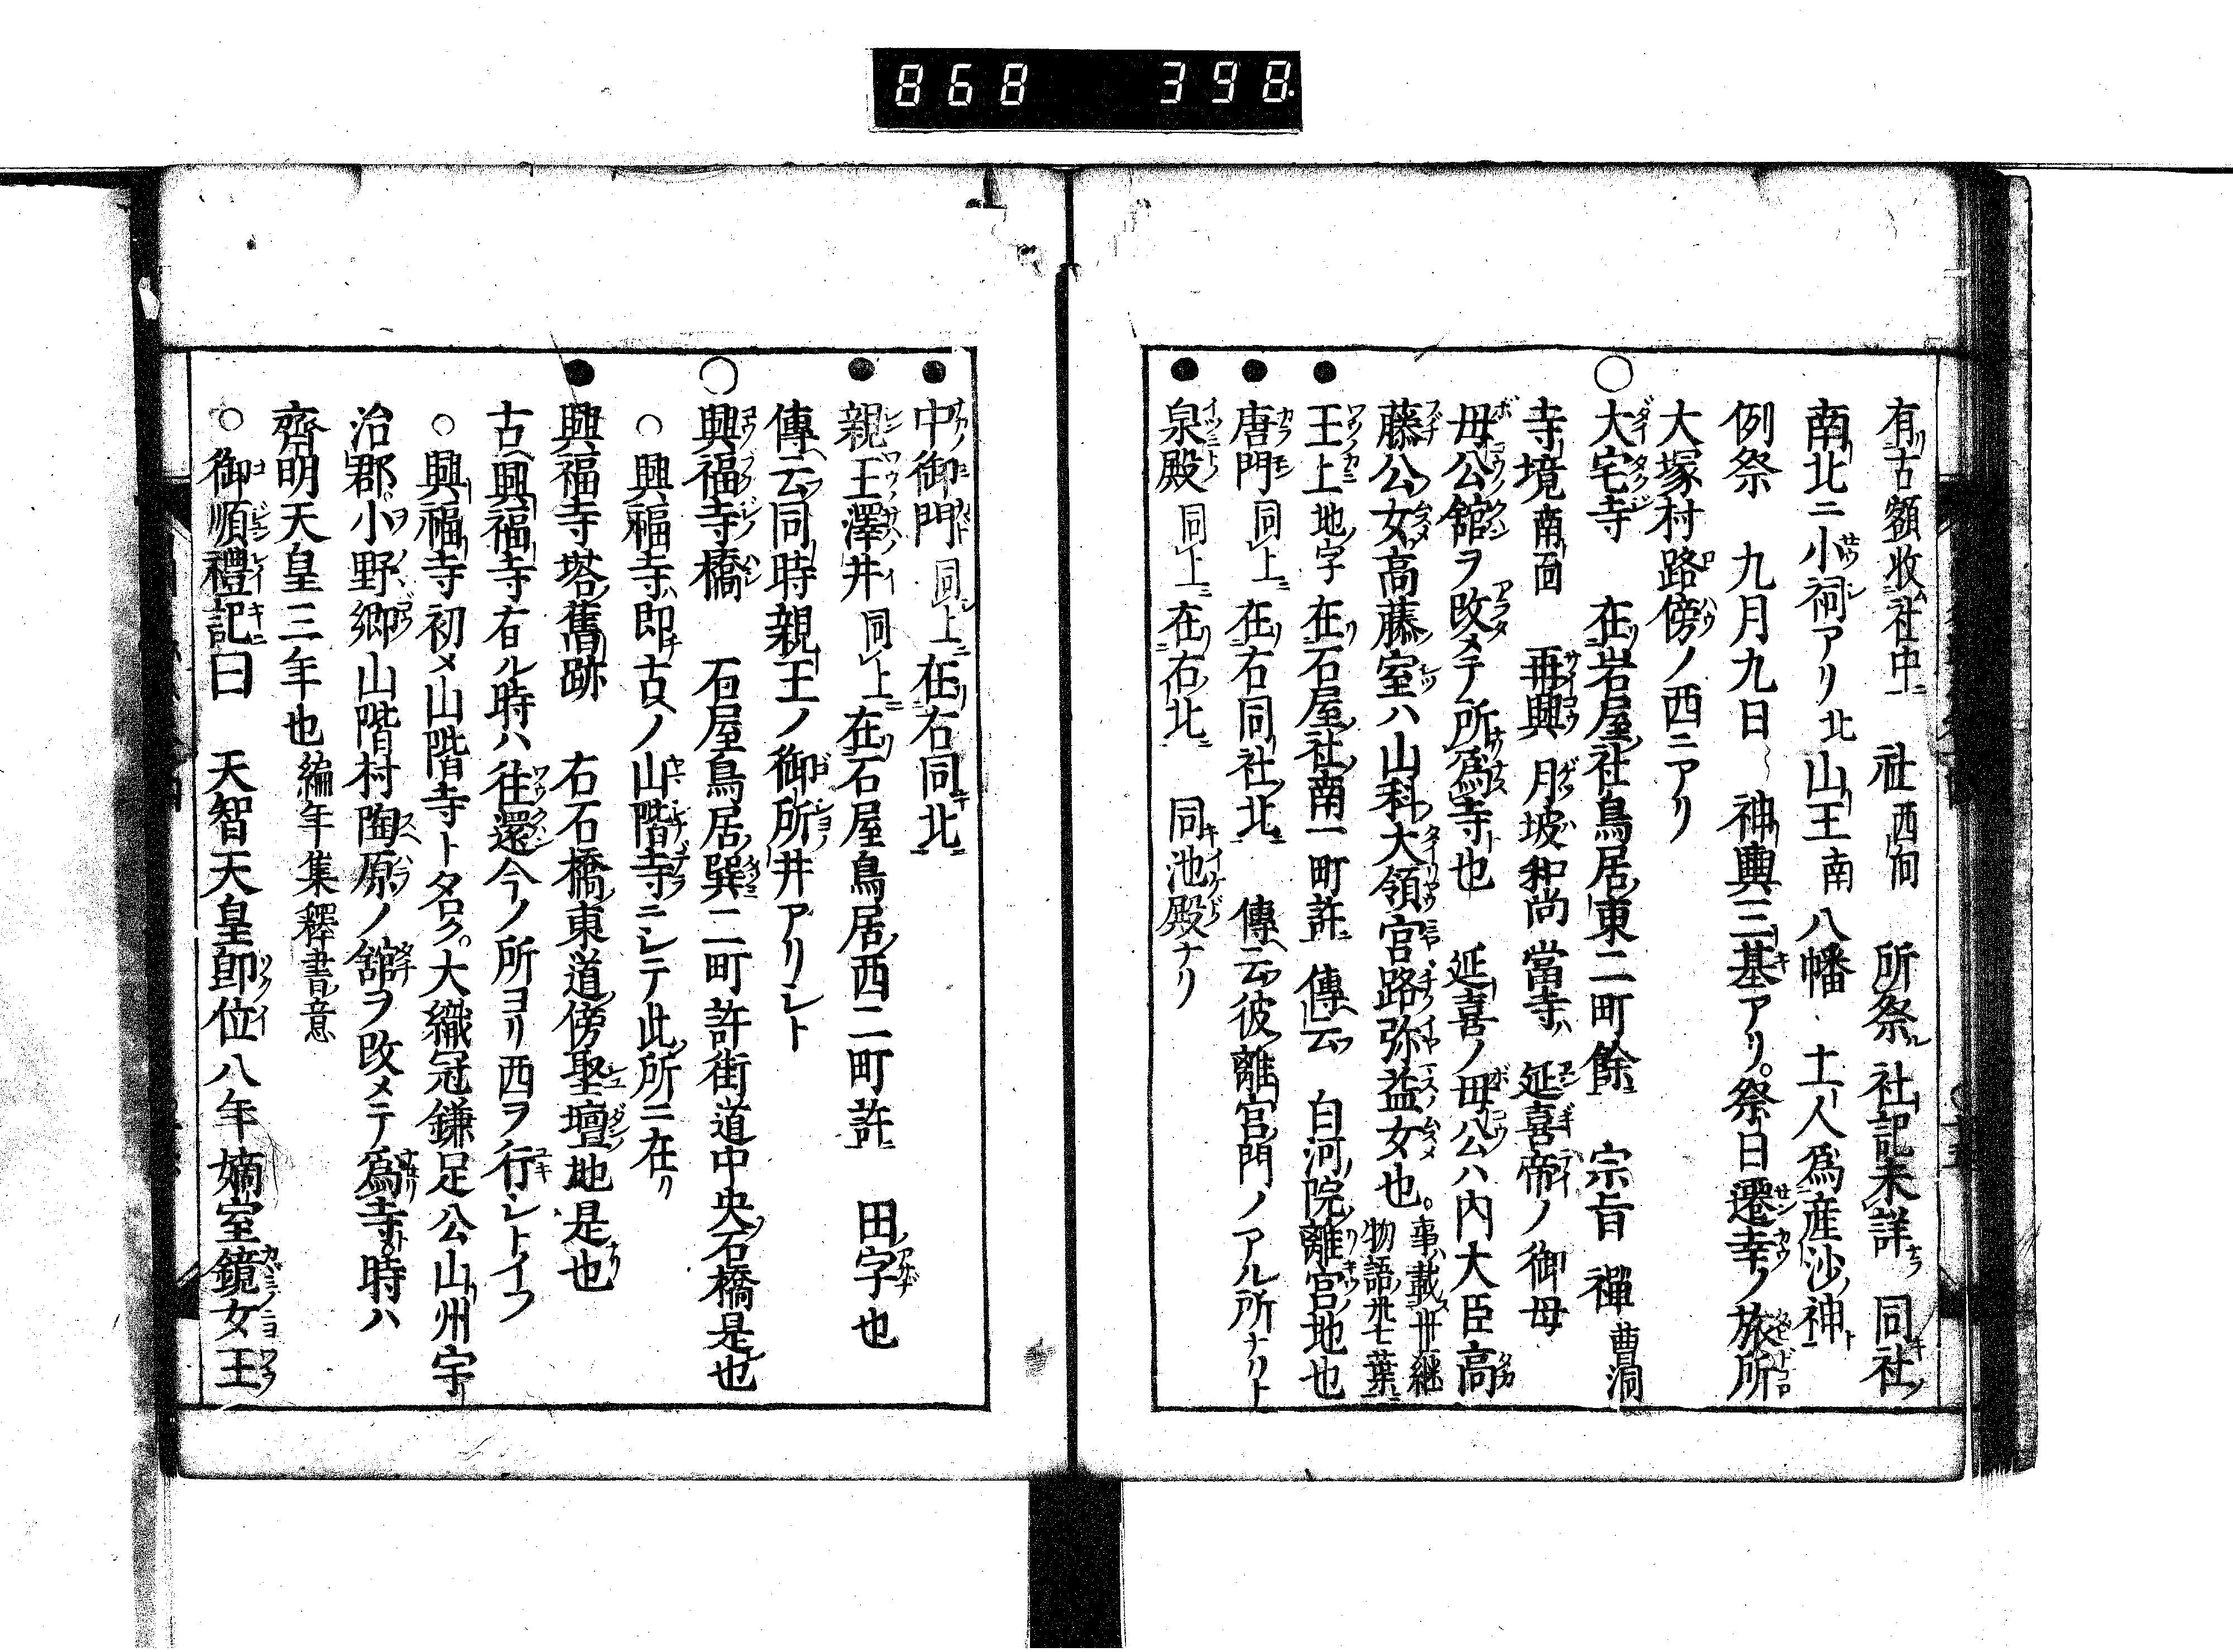 868 398
有古額收社中 社西向 所祭社記未詳 同社ノ
南北ニ小祠アリ北山王南八幡 土人為産沙神
例祭 九月九日 神輿三基アリ。祭日遷幸ノ旅所
大塚村路傍ノ西ニアリ
○大宅寺 在岩屋社鳥居東二町餘 宗旨禪曹洞
寺境南面 再興月坡和尚 當寺ハ延喜帝ノ御母
母公舘ヲ改メテ所為寺也 延喜ノ母公ハ内大臣高
藤公女高藤室ハ山科大領宮路弥益女也。事載世継物語卅七葉
●王上地字 在石屋社南一町許 傳云 白河院離宮地也
●唐門同上 在右同社北 傳云彼離宮門ノアル所ナリト
●泉殿同上 在右北 同池殿ナリ
●中御門同上 在右同北
●親王澤井同上 在石屋鳥居西二町許 田字也
傳云同時親王ノ御所井アリシト
○興福寺橋 石屋鳥居巽二町許街道中央石橋是也
○興福寺即古ノ山階寺ニシテ此所ニ在リ
●興福寺塔舊跡 右石橋東道傍聖壇地是也
古興福寺有ル時ハ往還今ノ所ヨリ西ヲ行シトイフ
○興福寺初メ山階寺ト名ク。大織冠鎌足公山州宇
治郡小野郷山階村陶原ノ舘ヲ改メテ為寺時ハ
齊明天皇三年也編年集釋書意
○御順禮記曰 天智天皇即位八年嫡室鏡女王